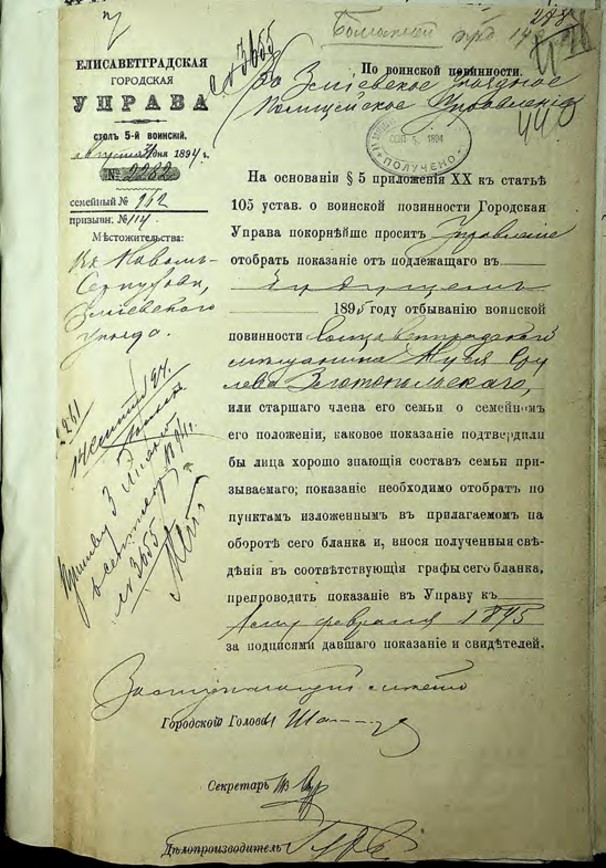 248
ЕЛИСАВЕТГРАДСКАЯ
ГОРОДСКАЯ
УПРАВА
СТОЛЪ 5-й ВОИНСКІЙ.
августа 31 дня 1894 г.
№ 2282
семейный № 962
призывн. № 114
Мѣстожительства:
Змѣевскаго
уѣзда.
№ 3655
По воинской повинности.
Въ Зміевское Уѣздное
Полицейское Управленіе
440
СЕН 5 1894
ПОЛУЧЕНО
На основаніи § 5 приложенія XX къ статьѣ
105 устав. о воинской повинности Городская
Управа покорнѣйше проситъ Управленіе
отобрать показаніе отъ подлежащаго въ
Будущемъ
1895 году отбыванію воинской
повинности Елисаветградскаго
мѣщанина
Златопольскаго,
или старшаго члена его семьи о семейномъ
его положеніи, каковое показаніе подтвердили
бы лица хорошо знающія составъ семьи при-
зываемаго; показаніе необходимо отобрать по
пунктамъ изложеннымъ въ прилагаемомъ на
оборотѣ сего бланка и, внося полученныя свѣ-
дѣнія въ соотвѣтствующія графы сего бланка,
препроводить показаніе въ Управу къ
февраля 1895
за подписями давшаго показаніе и свидѣтелей.
Заступающій мѣсто
Городского Головы
Секретарь
Дѣлопроизводитель
№ 3655